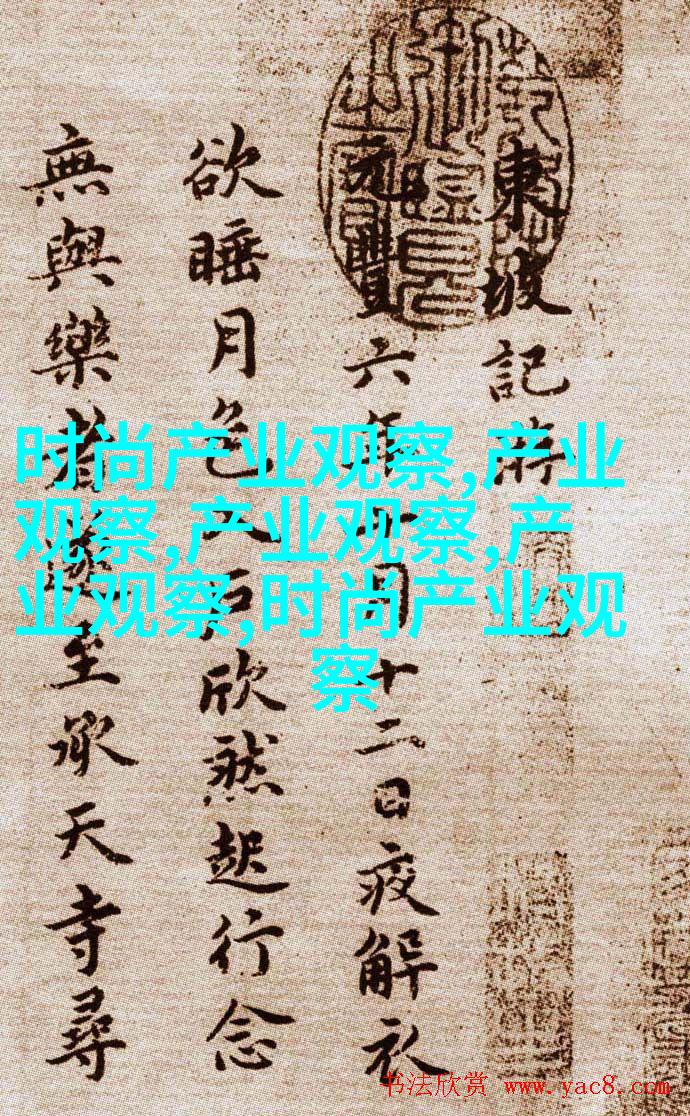 东坡記
元豐六年十月十二日夜解衣
欲睡月色入戶欣然起行念
無與樂者遂至承天寺尋
时尚产业观察,产业
观察,产业观察,产
业观察,时尚产业观
察
书法欣赏 www.yac8.com